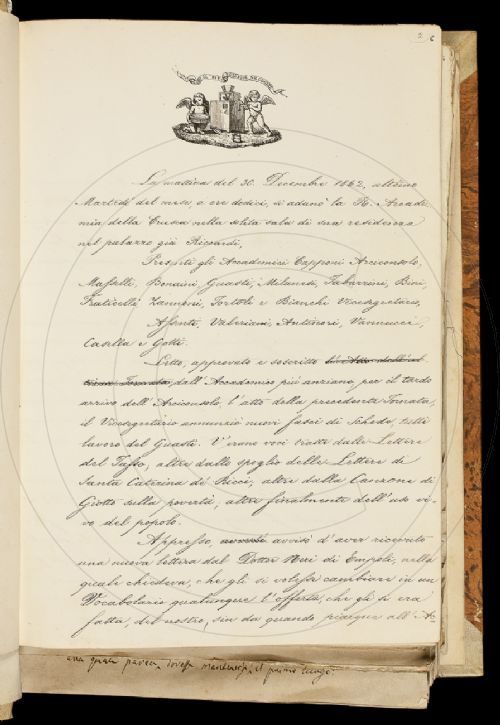 2 6
La mattina del 30. Decembre 1862, ultimo
Martedì del mese, a ore dodici, si adunò la R. Accade-
mia della Crusca nella solita sala di sua residenza
nel palazzo già Riccardi,
Presenti gli Accademici Capponi Arciconsolo,
Maffei, Bonaini, Guasti, Milanesi, Tabarrini, Bini,
Fraticelli, Zannoni, Tortoli e Bianchi Vicesegretario,
Assenti, Valeriani, Antinori, Vannucci,
Casella e Gotti.
Letto, approvato e soscritto
dall'Accademico più anziano per il tardo
arrivo dell'Arciconsolo, l'atto della precedente Tornata,
il Vicesegretario annunziò nuovi fasci di Schede, tutte
lavoro del Guasti. V'erano voci tratte dalle Lettere
del Tasso, altre dallo spoglio delle Lettere di
Santa Caterina de' Ricci, altre dalla Canzone di
Giotto sulla povertà, altre finalmente dell'uso vi-
vo del popolo.
Appresso, avvisò d'aver ricevuto
una nuova lettera dal Dottor Neri di Empoli, nella
quale chiedeva, che gli si volesse cambiare in un
Vocabolario qualunque l'offerta, che gli si era
fatta, del nostro, sin da quando piacque all'Ac-
una gran parte, dovesse mantenersi, il primo luogo.